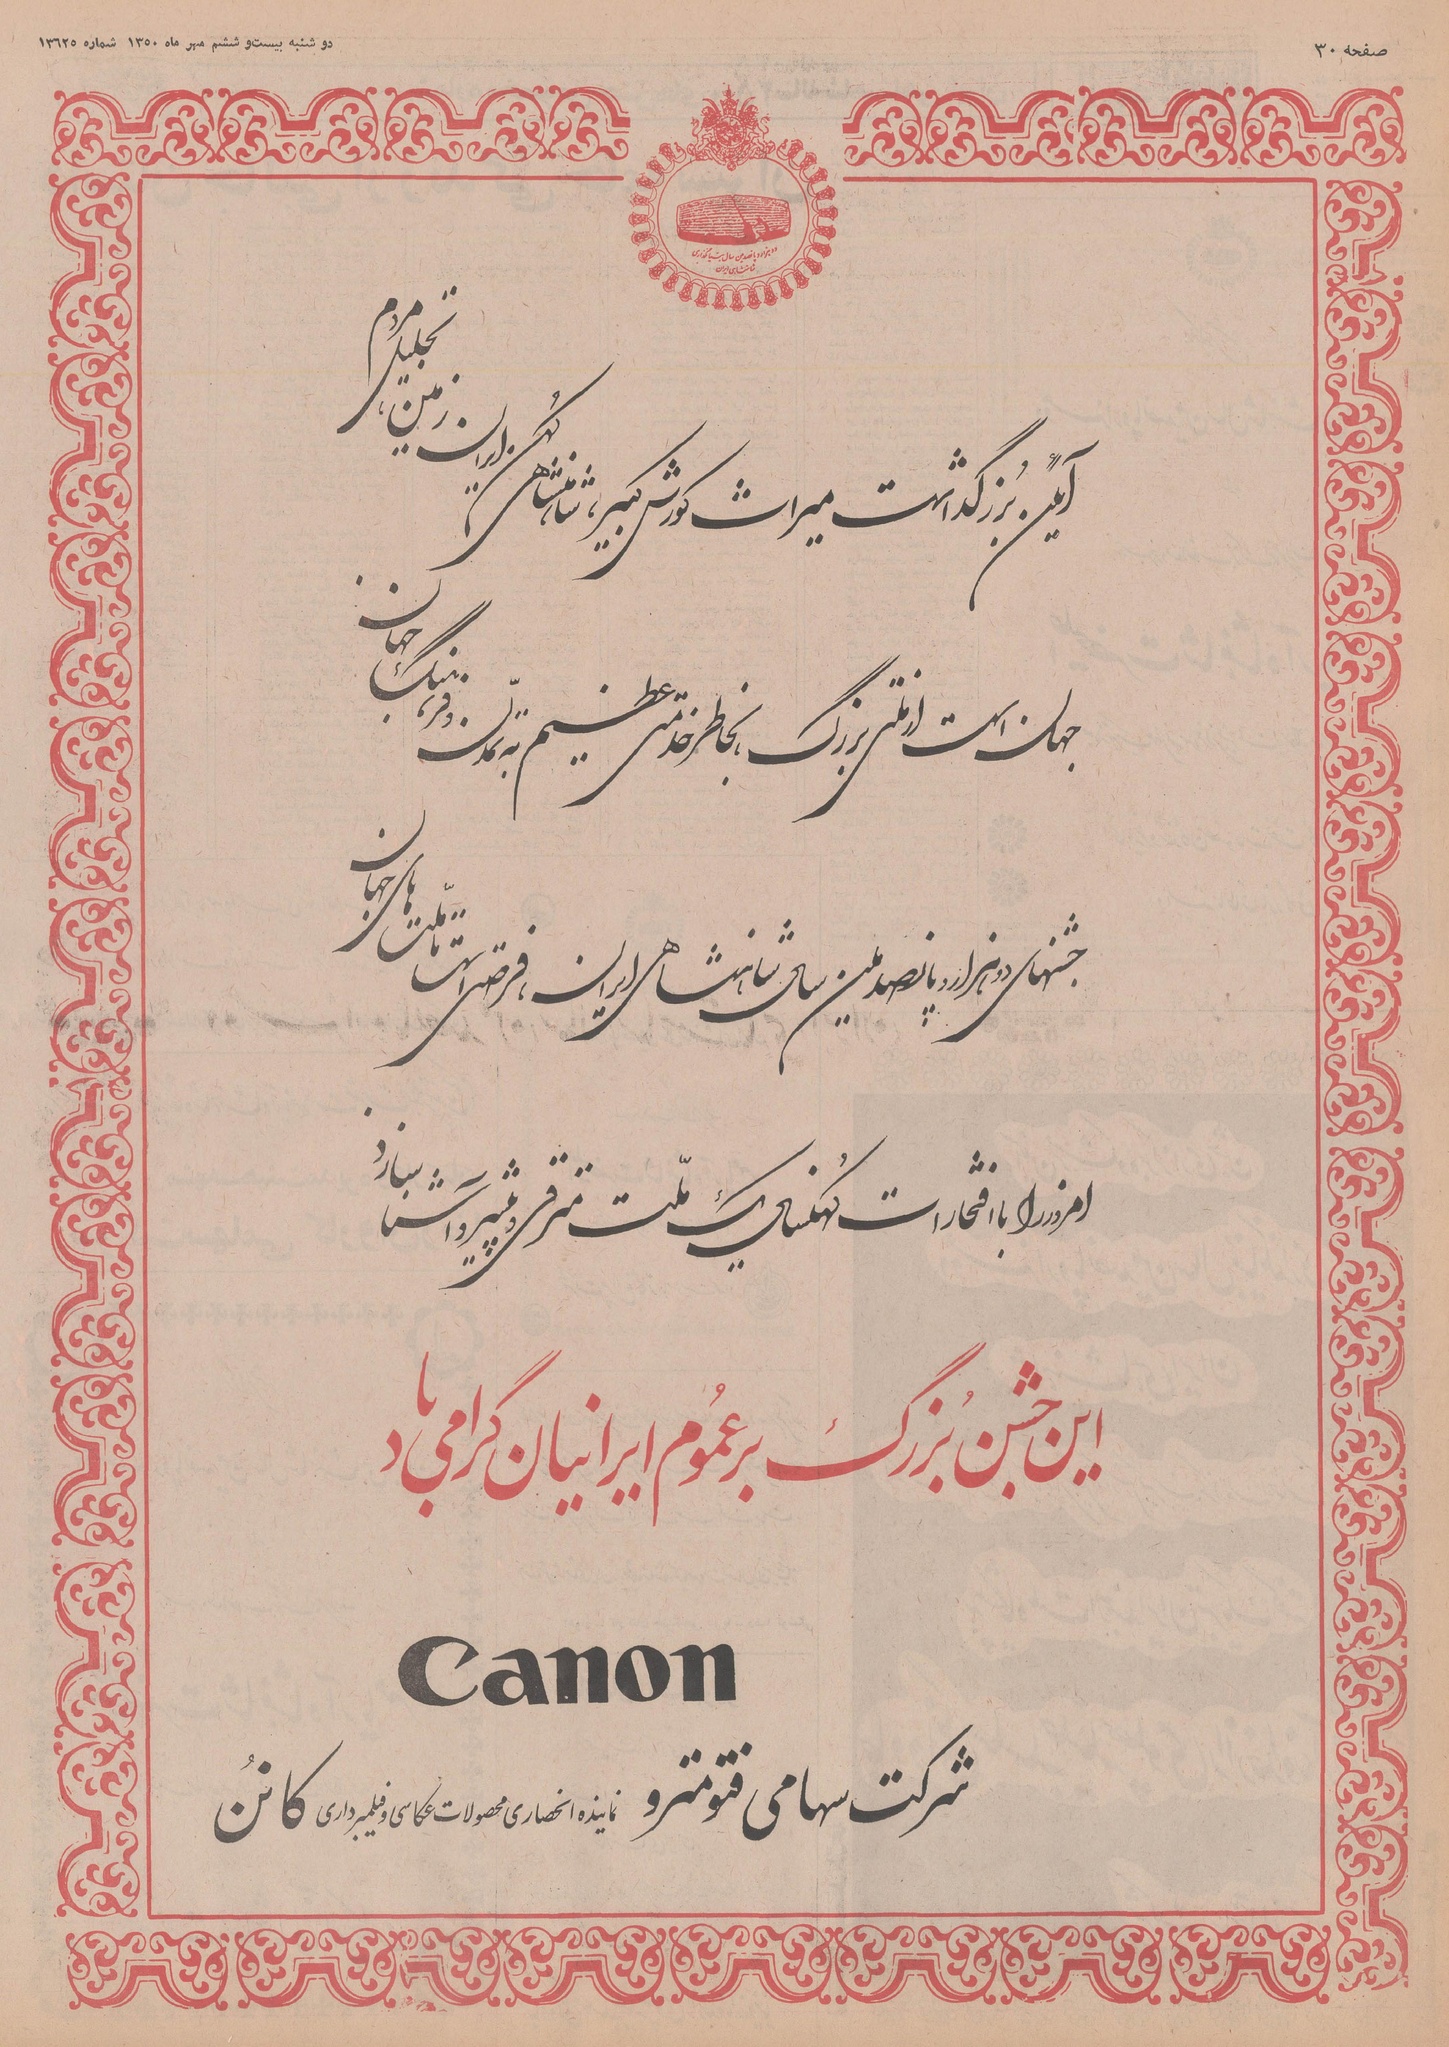 صفحه ۳۰
دو شنبه بیست‌و ششم مهر ماه ۱۳۵۰ شماره ۱۳۶۲۵
دو هزار و پانصدمین سال بنیانگذاری
شاهنشاهی ایران
آیین بُزرگداشت میراث کورش کبیر، شاهنشاهی کهُن ایران زمین، تجلیل مردم
جهان است از ملتی بزرگ، بخاطر خدمتی عظیم به تمدّن و فرهنگ جهان
جشنهای دو هزار و پانصدمین سال شاهنشاهی ایران، فرصتی است تا ملّت های جهان
امروز را با افتخارات کهُنسال یک ملّت مترقی و پیشرو آشنا سازد
این جشن بُزرگ بر عمُوم ایرانیان گرامی باد
Canon
شرکت سهامی فتو مترو نماینده انحصاری محصولات عکاسی و فیلمبرداری کانُن